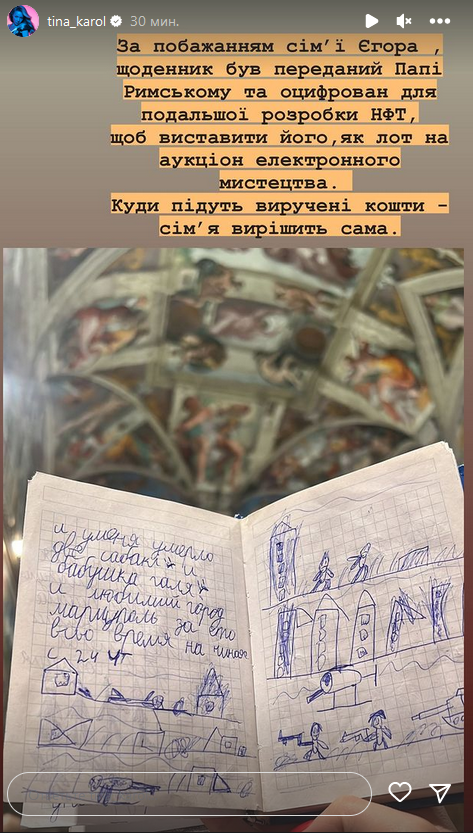 tina_karol 30 мин.
За побажанням сім'ї Єгора ,
щоденник був переданий Папі
Римському та оцифрован для
подальшої розробки НФТ,
щоб виставити його,як лот на
аукціон електронного
мистецтва.
Куди підуть виручені кошти -
сім'я вирішить сама.
и уменя умерло
две сабаки и
бабушка галя
и любимий город
мариуполь за ето
всво время на чиная
с 24 чт